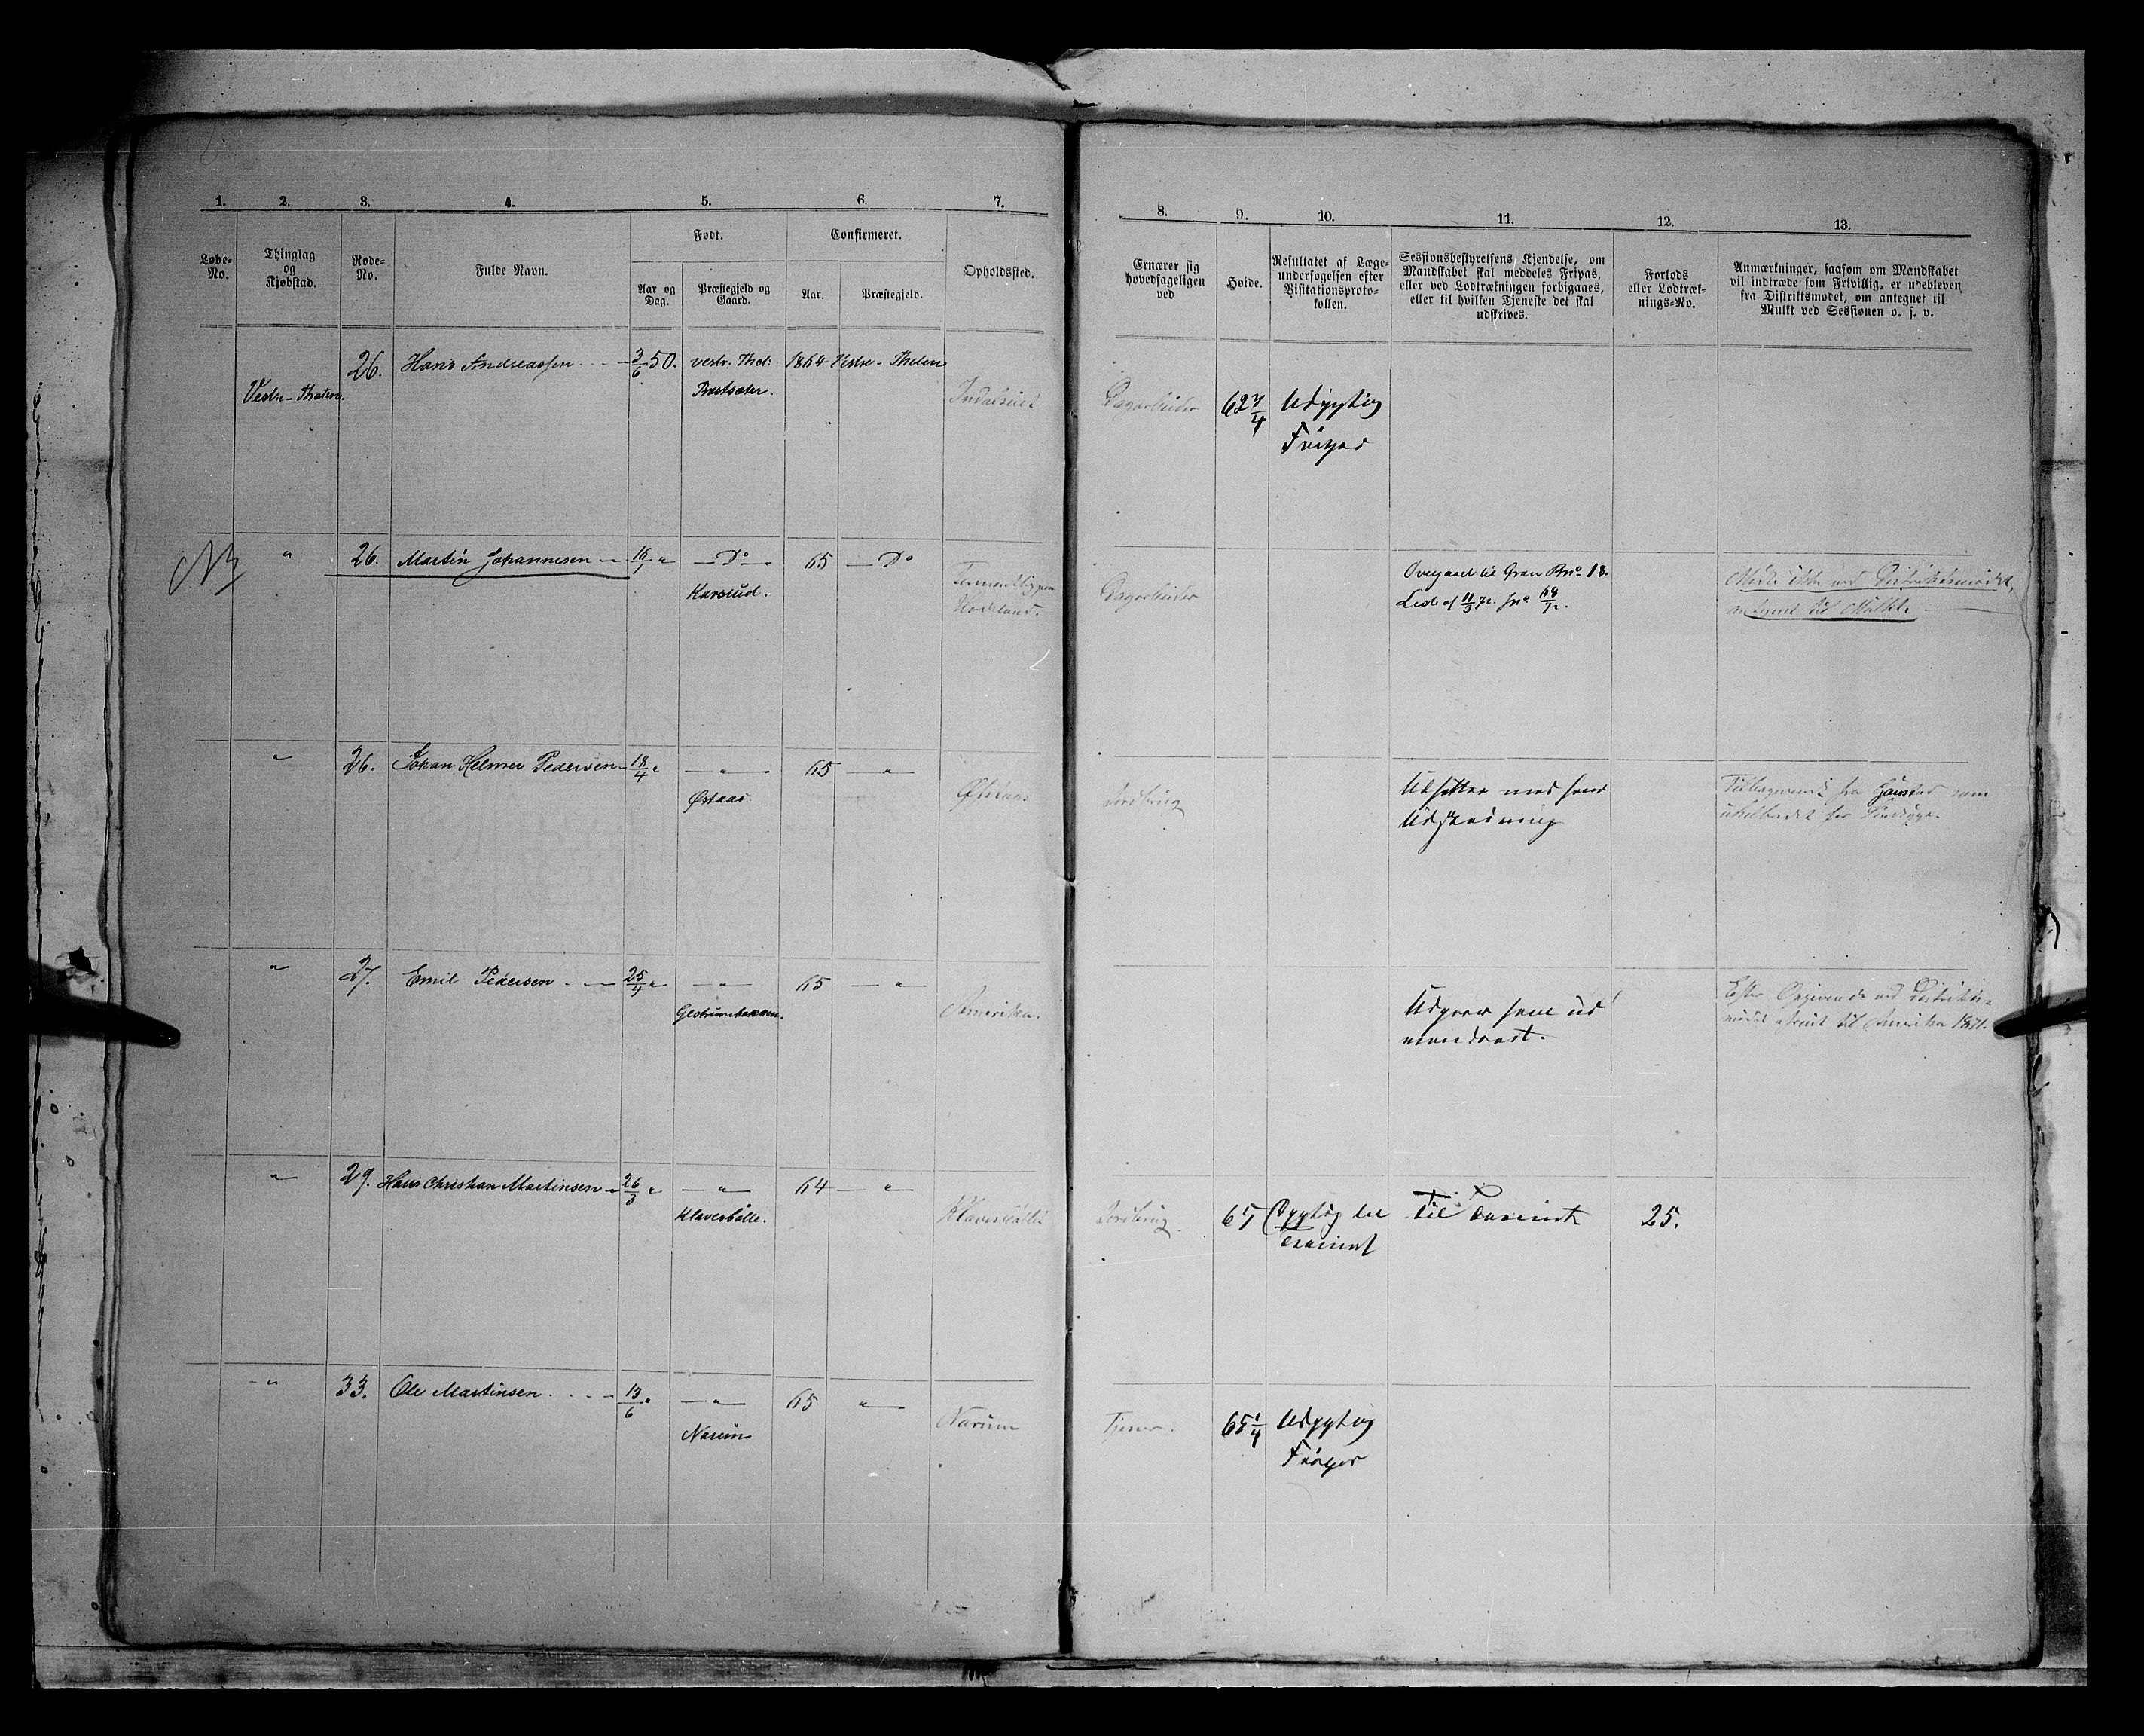 1. 2. 3. 4. 5. 6. 7.
Løbe-No.
Thinglag og Kjøbstad.
Rode-No.
Fulde Navn.
Født.
Aar og Dag.
Præstegjeld og Gaard.
Confirmeret.
Aar.
Præstegjeld.
Opholdssted.
8. 9. 10. 11. 12. 13.
Ernærer sig hovedsageligen ved
Høide.
Resultatet af Lægeundersøgelsen efter Visitationsprotokollen.
Sessionsbestyrelsens Kjendelse, om Mandskabet skal meddeles Fripas, eller ved Lodtrækningen forbigaaes, eller til hvilken Tjeneste det skal udskrives.
Forlods eller Lodtræknings-No.
Anmærkninger, saasom om Mandskabet vil indtræde som Frivillig, er udebleven fra Distriktsmødet, om antegnet til Mulkt ved Sessionen o. s. v.
26. Hans Andreassen 3/6 50. vestr. Thot: 1864 Vestre-Thoten
Vestr-Thoten.
Dagarbeider 62 3/4 Udygtig
Fripas
NB " 26. Martin Johannesen 16/1 " Do 65 Do
Karsrud.
Hadeland.
Dagarbeider
Overgaaet til Gran Rno 18
Liste af
Mødte ikke ved Distriktsmødet,
antegnet til Mulkt.
" 26. Johan Helmer Pedersen 18/4 " " 65 "
Østaas
Jordbrug
Udsættes med hans
Udskrivning
Tilbagesendt fra Gaustad som
uhelbredet for Sindsyge.
" 27. Emil Pedersen 25/4 " " 65 "
Amerika.
Udgaar som ud
vandret.
Efter Opgivende ved Distrikts-
mødet afreist til Amerika 1871.
" 29. Hans Christian Martinsen 26/3 " " 64 "
Klavesbølle.
Klavesbølle
Jordbrug. 65 Dygtig til
Trainet
Til Trainet
25.
" 33. Ole Martinsen 13/6 " " 65 "
Narum
Narum
Tjener. 65 1/4 Udygtig
Fripas